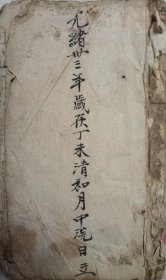 光緒卅三年歲茯丁未清和月中浣日立